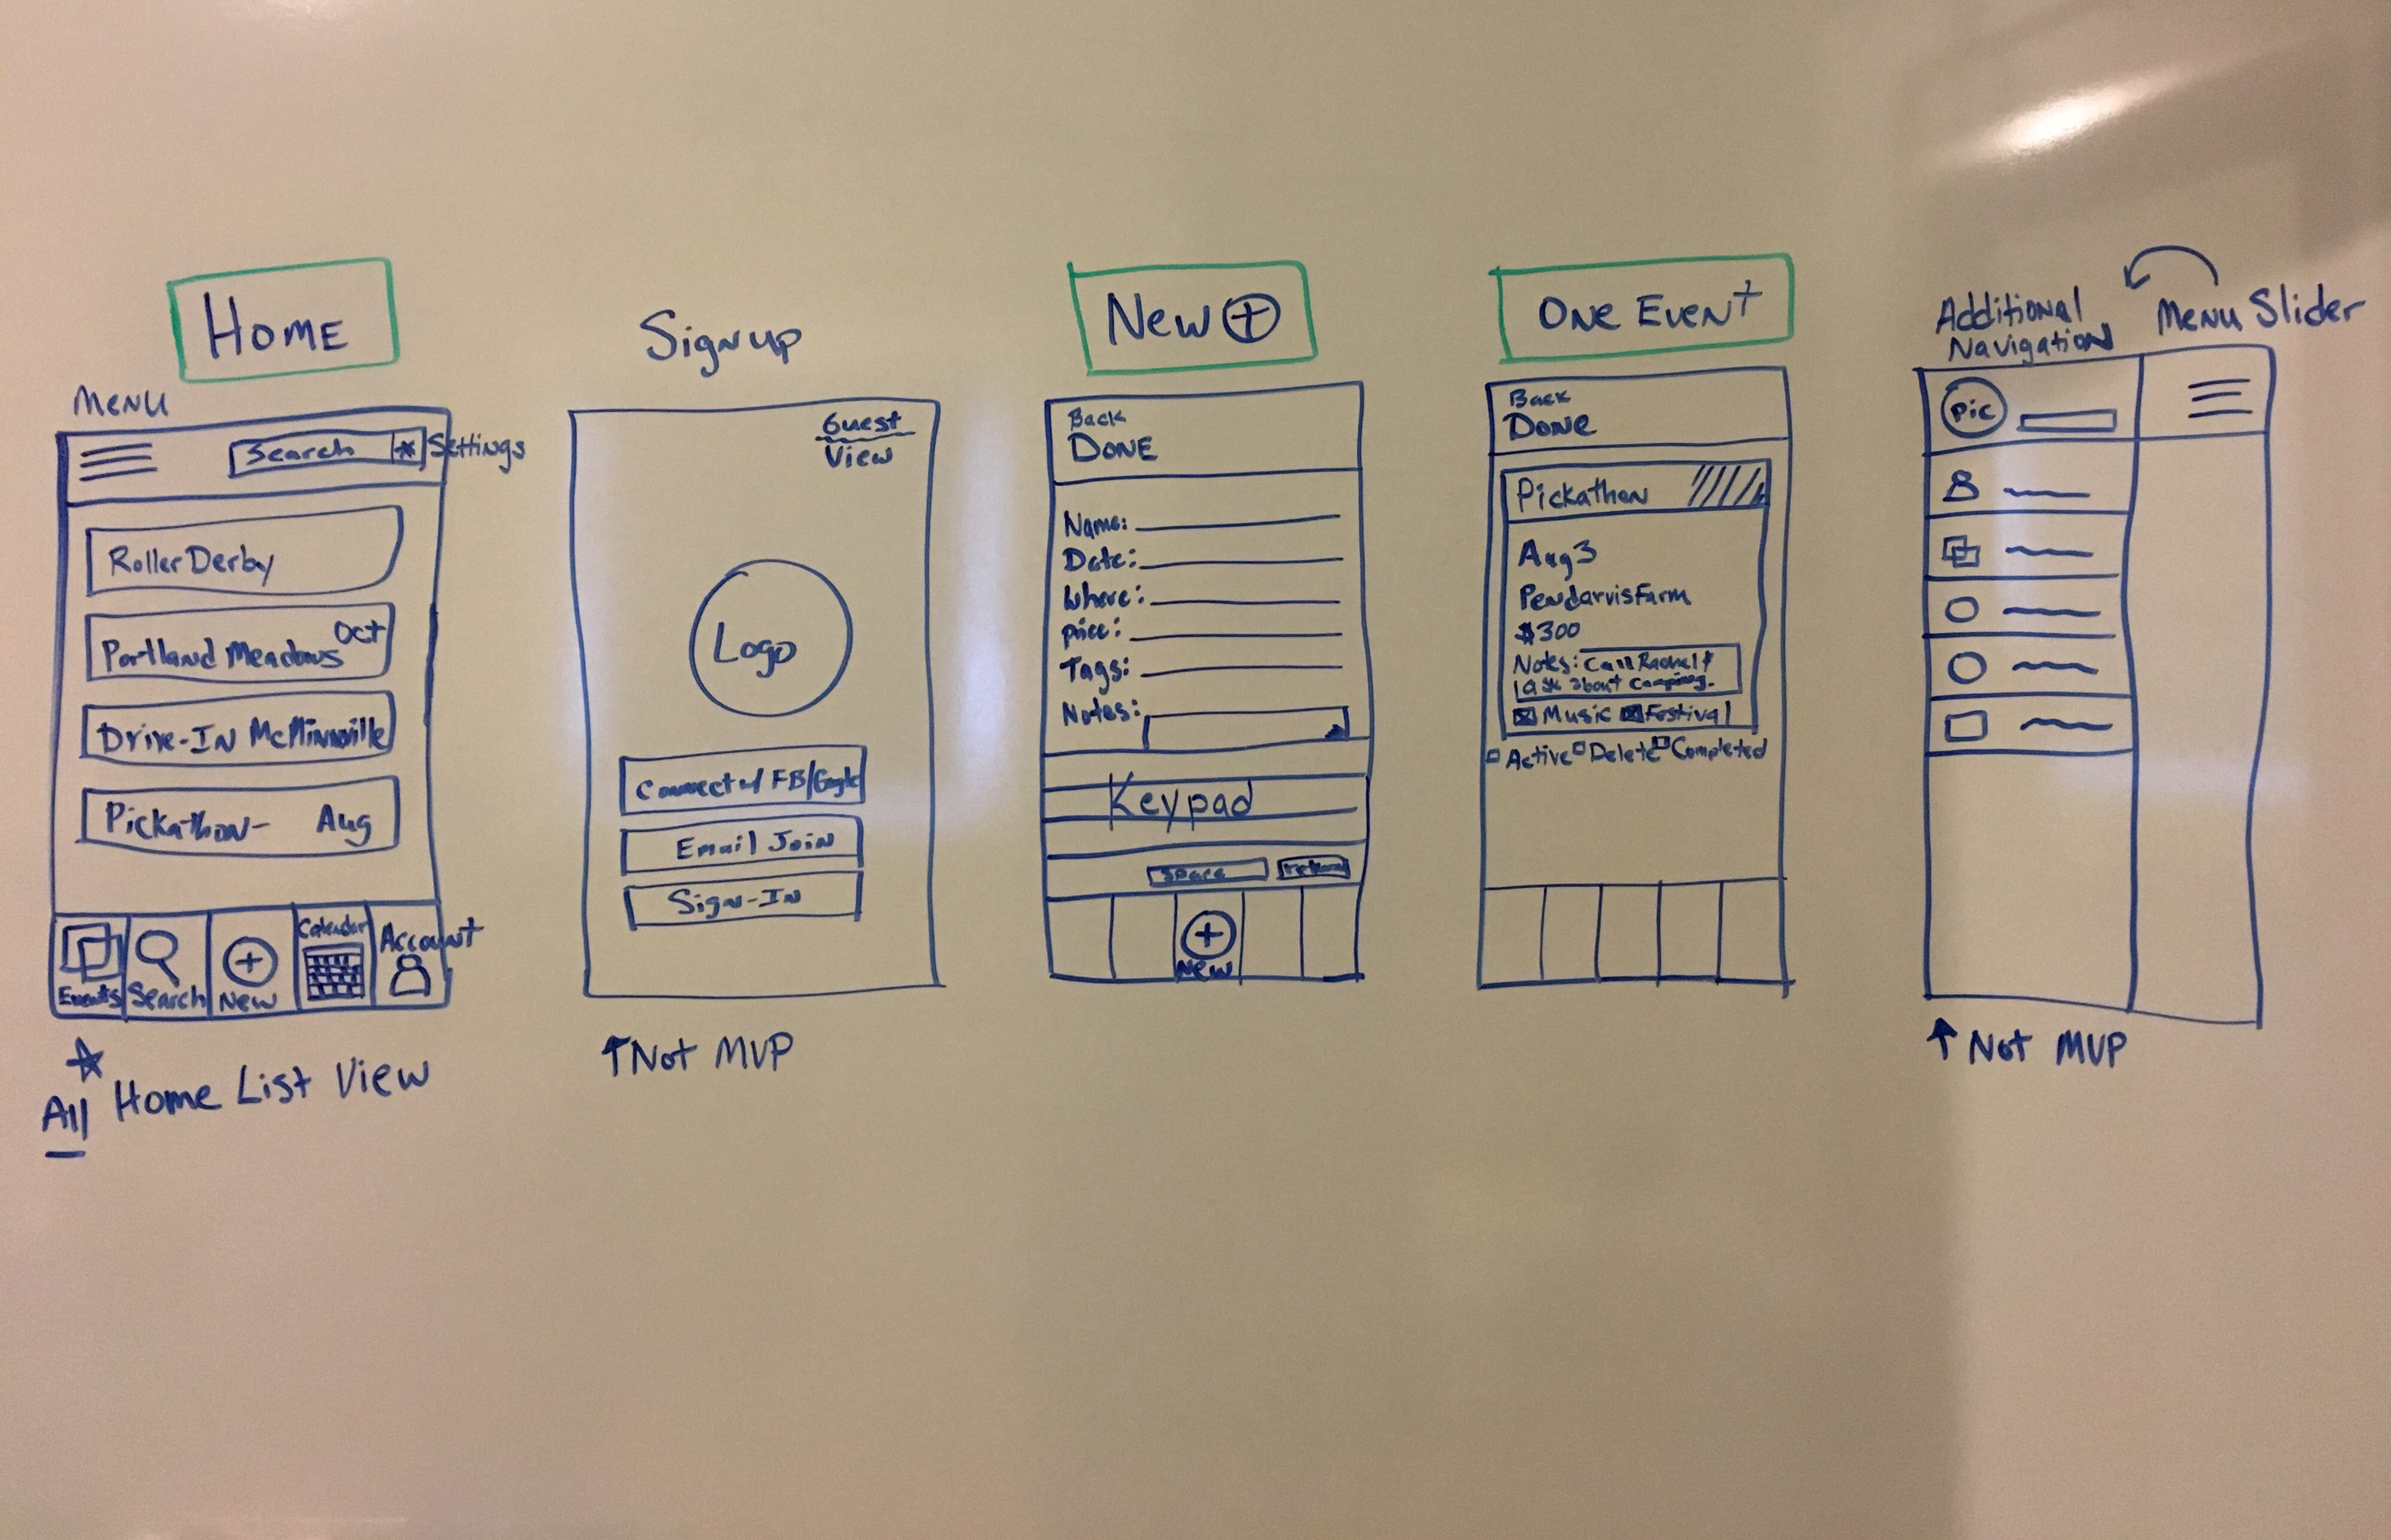 Home
Menu
Search * Settings
Roller Derby
Oct
Portland Meadows
Drive-In McMinnville
Pickathon- Aug
Calendar
Account
Events Search New
☆
All Home List View
Signup
Guest
View
Logo
Connect w/ FB/Google
Email Join
Sign-In
↑ Not MVP
New ⊕
Back
Done
Name:
Date:
Where:
price:
Tags:
Notes:
Keypad
space return
New
One Event
Back
Done
Pickathon
Aug 3
Pendarvis Farm
$300
Notes: Call Rachel &
ask about camping.
Music Festival
Active Delete Completed
Additional
Navigation
Menu Slider
Pic
↑ Not MVP